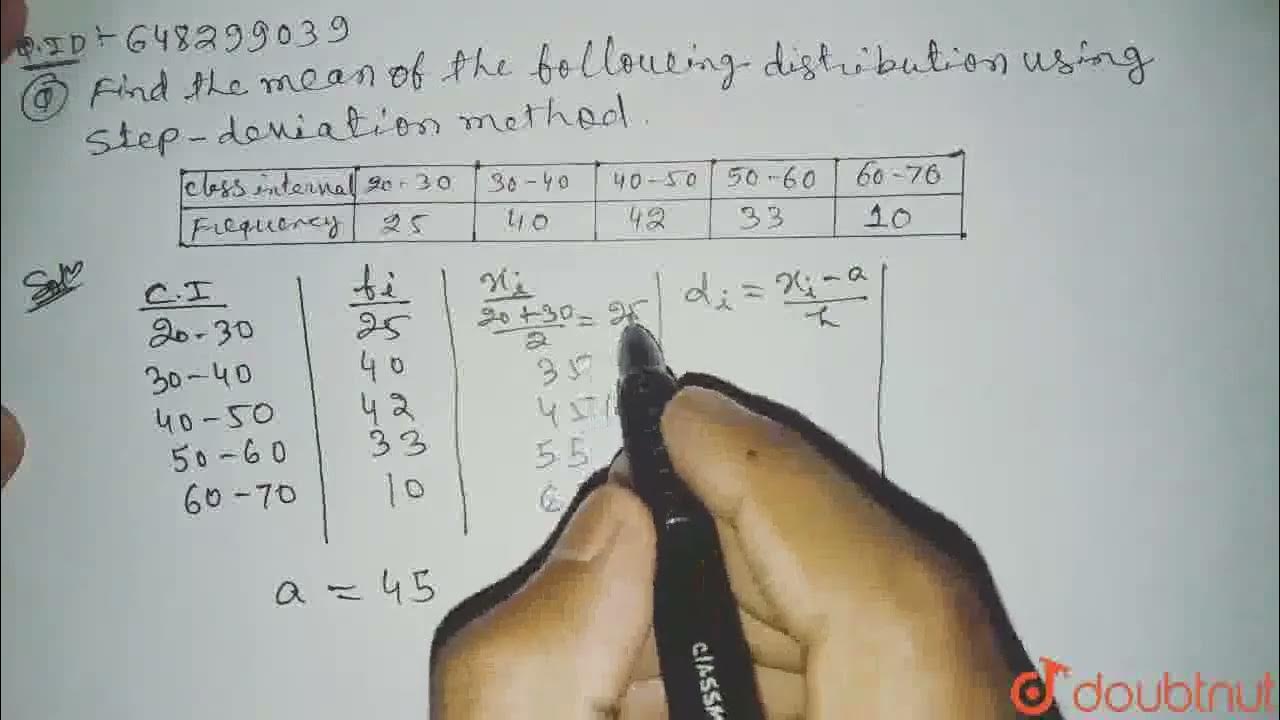 Q.ID :- 648299039
Q Find the mean of the following distribution using
Step-deviation method.
Class internal 20-30 30-40 40-50 50-60 60-70
Frequency 25 40 42 33 10
Soln
C.I fi xi di = xi - a / h
20-30 25 20+30 / 2 = 25
30-40 40 35
40-50 42 45
50-60 33 55
60-70 10 6
a = 45
CLASSM
doubtnut